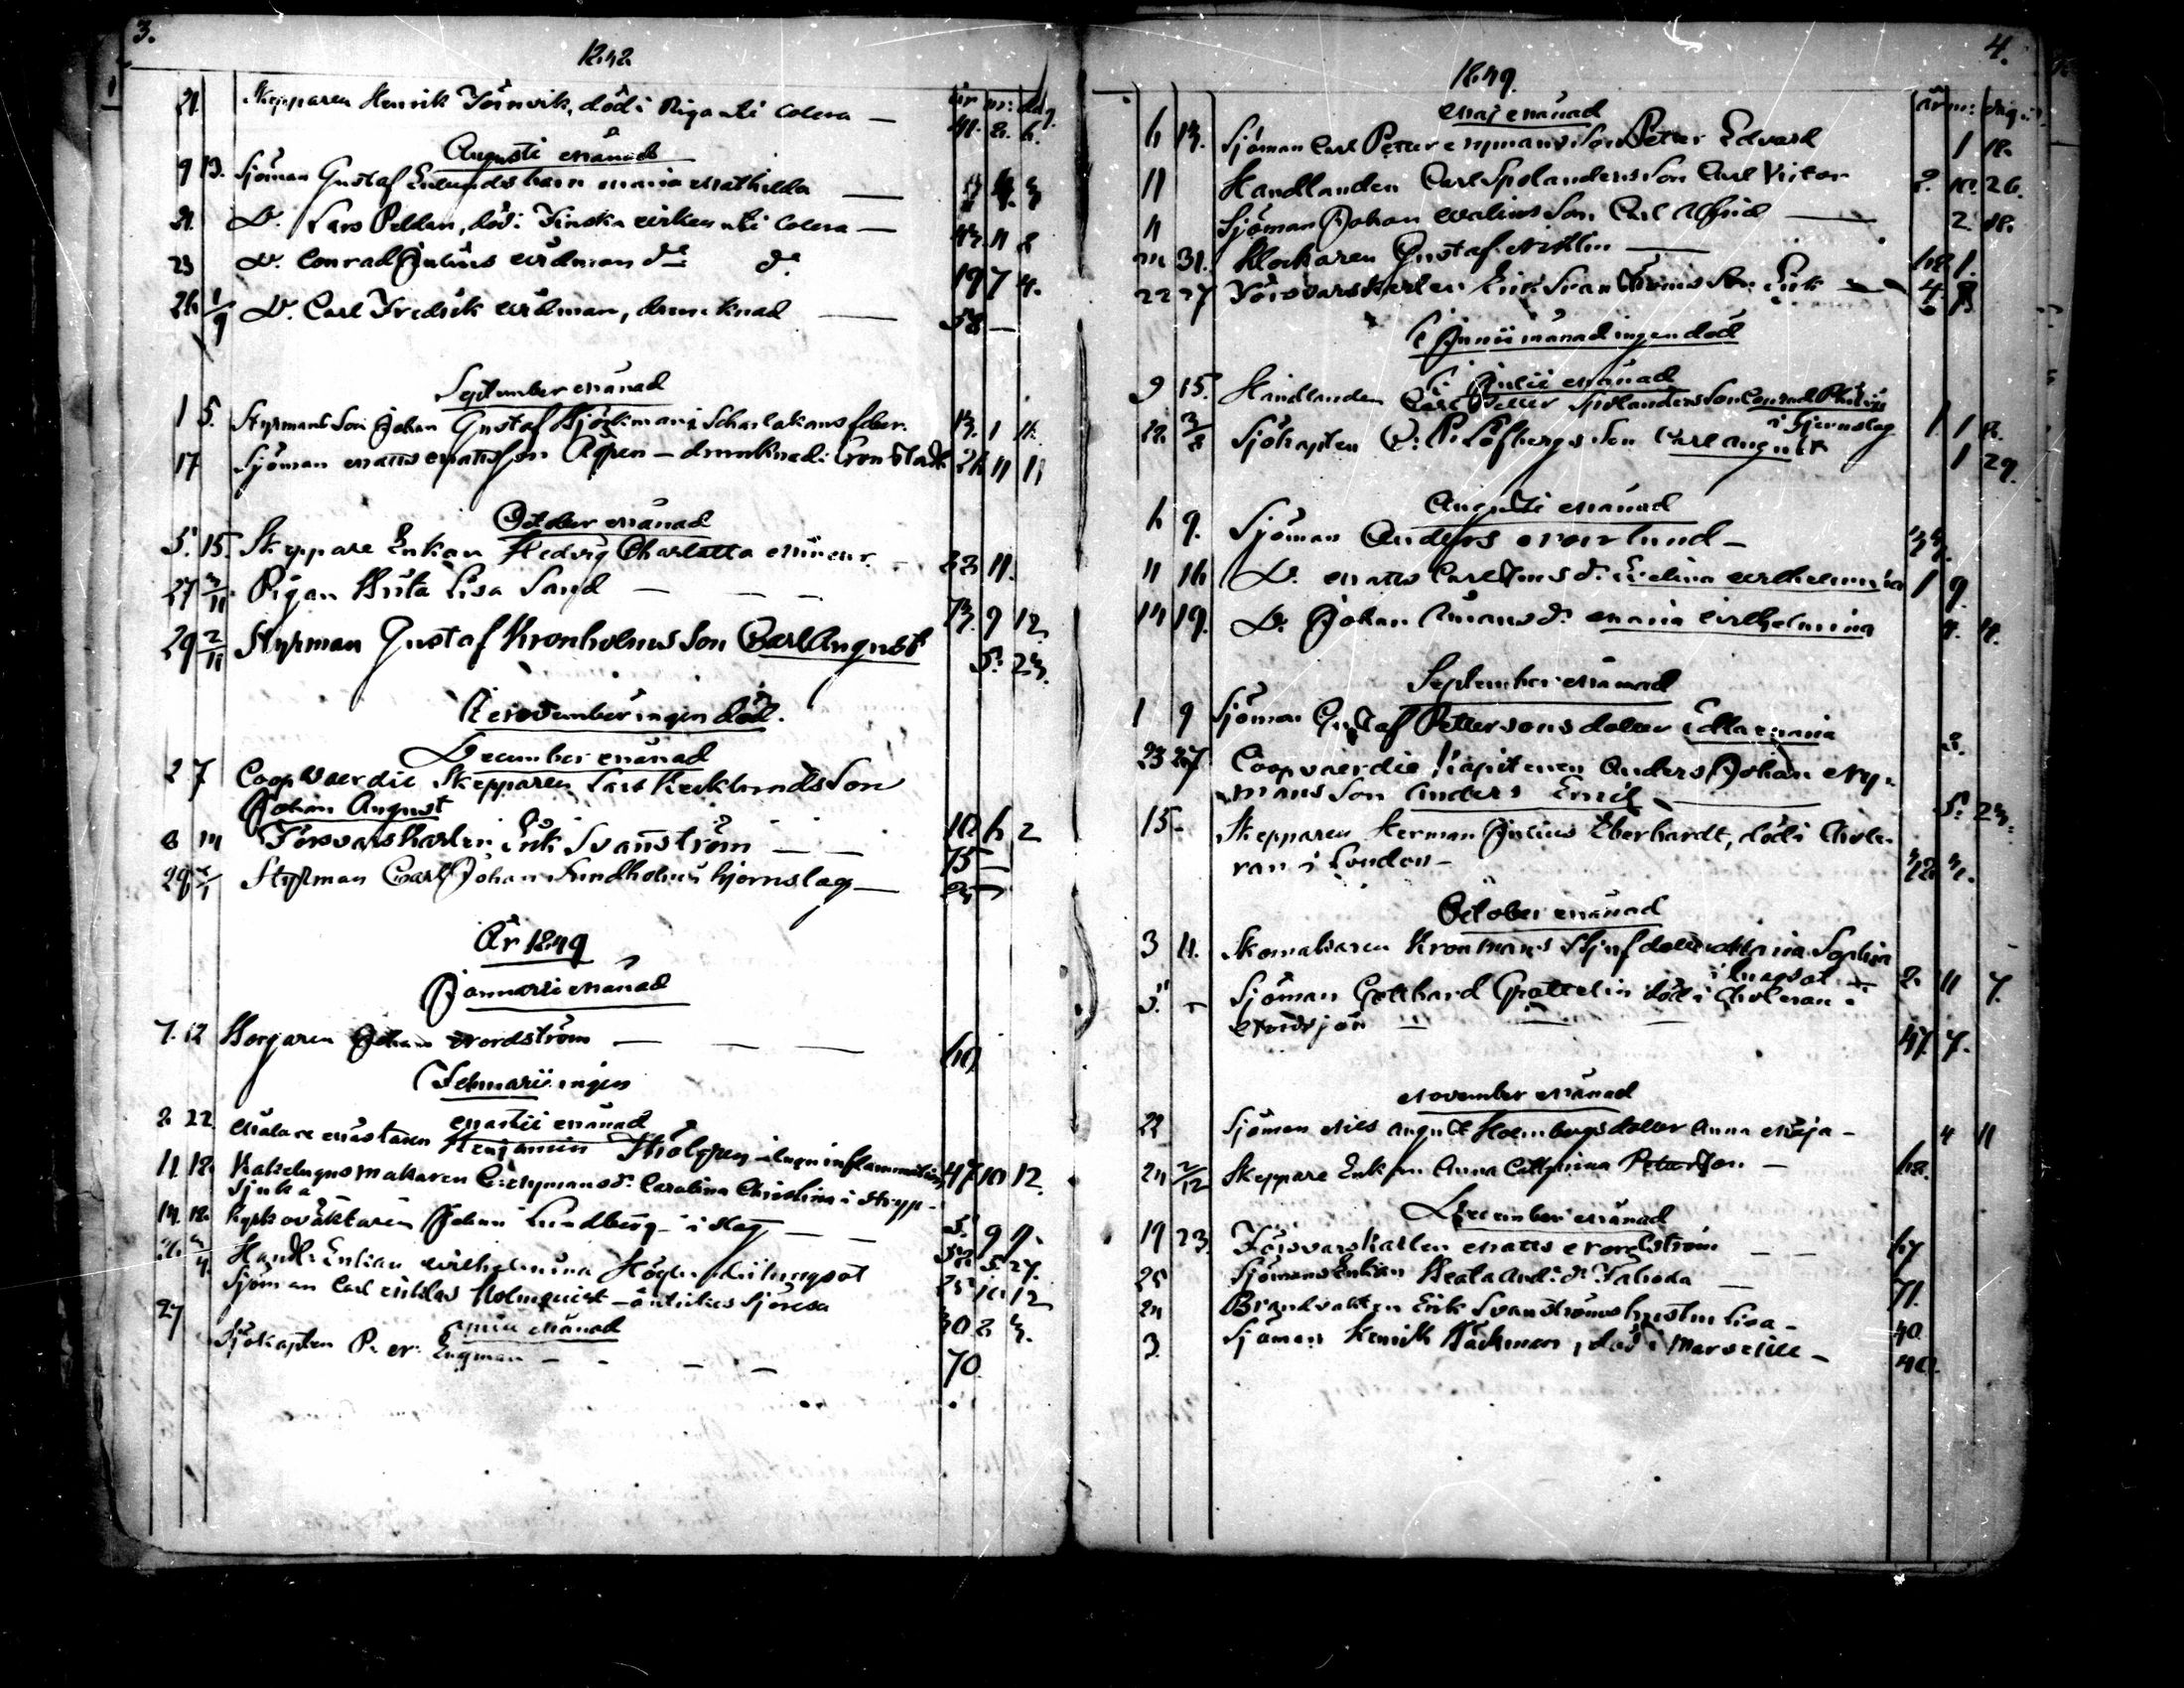 3.
1848
år m: dag.
21. Skepparen Henrik Törnvik, död i Riga uti Colera — 41. 2. 6.
Augusti Månad
9 13. Sjöman Gustaf Enlunds barn Maria Mathilda —
21. D:o Lars Peldan, död i Finska Viken uti Colera — 43 11 8
23 D:o Conrad Julius Widman d:o d:o 19 7 4.
26 1/9 D:o Carl Fredrik Widman, drunknad — 58 —
September Månad
1 5. Styrmans Son Johan Gustaf Björkman i Scharlakansfeber. 13. 1 11.
17 Sjöman Matts Mattsson Aspen — drunknad i Cronstadt 26 11 11
October Månad
5. 15. Skeppare Enkan Hedvig Charlotta 82 11.
27 3/11 Pigan Brita Lisa Sand — — — 73. 9 12
29 2/11 Styrman Gustaf Kronholms Son Carl August 5. 23.
I November ingen död.
December Månad
2 7 Coopvaerdie Skepparen Lars Kecklunds Son
Johan August 10 6 2
8 14 Försvarskarlen Erik Svanström — — 75 —
29 Styrman Carl Johan Sundholm hjernslag — —
År 1849
Januarii Månad
7. 12 Borgaren Johan Nordström — — — 60
Februarii ingen
Martii Månad
2 22. Målare Mästaren Benjamin Skölgren — lunginflammation 47 10 12.
11 18. Kakelugnsmakaren C. Nymans d:r Carolina Christina i Stryp-
sjuka 5. 9 9.
14. 18. Kyrkovaktaren Johan Lundberg — i slag — — 5. 27.
Handl: Enkan Wilhelmina Höglund i lungsot 25 10 12
Sjöman Carl Niklas Holmquist — Sjöresa 30 2 3.
Aprill Månad
27 Sjökapten P. N. Engman — — — — 70.
4.
1849.
år m: dagar.
Maj Månad
6 13. Sjöman Carl Petter Nymans Son Petter Edvard 1 18.
11 Handlanden Carl Spolanders Son Carl Victor 2. 10. 26.
11 Sjöman Johan Walins Son Carl Alfrid — 2 18.
31. Klockaren Gustaf Nixlin — 68 1.
22 27 Försvarskarlen Erik Svanströms Son Erik — 4
I Junii månad ingen död
I Julii Månad
9 15. Handlanden Carl Petter Spolanders Son Conrad
i Hjernslag 1. 1 8.
28. 3/8 Sjökapten C. P. Löfbergs Son Carl August 1 29.
Augusti Månad
6 9. Sjöman Anders Norrlund — 37.
11 16 D:o Matts Carlströms d:r Evelina Wilhelmina 1 9.
14 19. D:o Johan Åmans d:r Maria Wilhelmina 4. 18.
September Månad
1 9 Sjöman Gustaf Petterssons dotter Edla Maria 3.
23 27 Coopvaerdie Kapitenen Anders Johan Ny-
mans Son Anders Emil — 5. 23.
15 — Skepparen Herman Julius Eberhardt, död i Chole-
ran i London — 32. 3.
October Månad
3 11. Skomakaren Kronmans Styfdotter Maria Sophia
i lungsot — 2. 11 7.
5. — Sjöman Gotthard Grattelin död i Choleran i
Nordsjön — — — 47. 7.
November Månad
22 Sjöman Nils August Holmbergs dotter Anna Maja — 4 11
24 2/12 Skeppare Enkan Anna Catharina Petersson — 68.
December Månad
19 23. Försvarskarlen Matts Nordström — — 67
25 Sjömans Enkan Beata And: d:r Taboda — 71.
24 Brandvakten Erik Svanströms hustru Lisa — 40
3. Sjöman Henrik Bäckman, död i Marseille — 40.